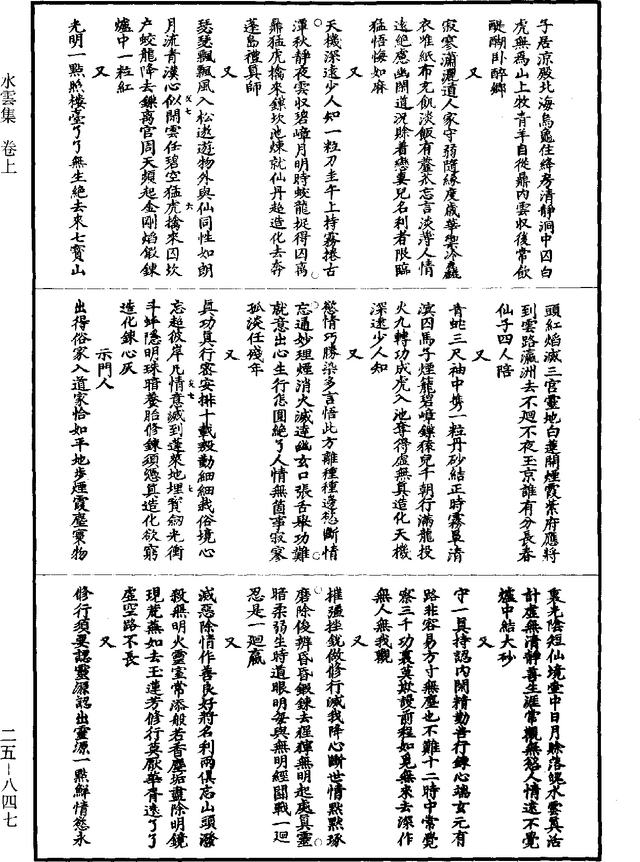 水雲集 卷上
二五—八四七
子居涼殿北海烏龜住絳房清靜洞中囚白
虎無為山上牧青羊自從鼎內雲収後常飲
醍醐卧醉鄉
又
寂寥瀟灑道人家守弱隨緣度歲華禦冷麤
衣唯紙布充飢淡飯有虀茶忘言淡薄人情
遠絕慮幽閑道況賒着戀妻兒名利者限臨
猛悟悔如麻
又
天機深遠少人知一粒刀圭午上持霧捲古
潭秋靜夜雲収碧嶂月明時蛟龍捉得囚离
鼎猛虎擒來鍊坎池煉就仙丹超造化去奔
蓬島禮真師
又
瑟瑟飄飄風入松遨遊物外與仙同性如朗
月流青漢心似閑雲任碧空猛虎擒來囚坎
户蛟龍降去鎌离宮周天頻起金剛焰鍛鍊
爐中一粒紅
又
光明一點照樓臺了了無生絕去來七寳山
頭紅焰滅三宮靈地白蓮開煙霞紫府應將
到雲路瀛洲去不迴不夜玉京誰有分長春
仙子四人陪
又
青蛇三尺袖中携一粒丹砂結正時霧罩清
濵囚馬子煙籠碧嶂鏁猿兒千朝行滿龍投
火九轉功成虎入池奪得虛無真造化天機
深遠少人知
又
慾情巧勝染多言悟此方離種種邉愁斷情
忘通妙理煙消火滅達幽玄口張舌舉功難
就意出心生行怎圓絕了人情無箇事寂寥
孤淡任殘年
又
真功真行密安排十載殷勤細細裁俗境心
忘超彼岸凡情意滅到蓬萊地埋寳劒光衝
斗蚌隠明珠暗養胎修鍊須憑真造化欲窮
造化鍊心灰
示門人
出得俗家入道家恰如平地步煙霞塵寰物
裏光隂短仙境壷中日月賒落魄水雲真活
計虛無清靜善生涯常擨無慾人情遠不覺
爐中結大砂
又
守一真持認內閑精勤善行鍊心端玄元有
路非容易方寸無塵也不難十二時中常覺
察三千功裏莫欺謾前程如覓無來去深作
無人無我觀
又
摧強挫銳做修行滅我降心斷世情點點琢
磨除俊辨昏昏鍛鍊去惺惺無明起處具靈
暗柔弱生時道眼明每與無明經鬭戰一迴
忍是一迴贏
又
滅惡除情作善良好將名利兩俱忘山頭潑
殺無明火靈室常添般若香塵垢盡除明鏡
現荒蕪如去玉蓮芳修行莫厭華胥遠了了
虛空路不長
又
修行須要認靈源認出靈源一點鮮情慾永